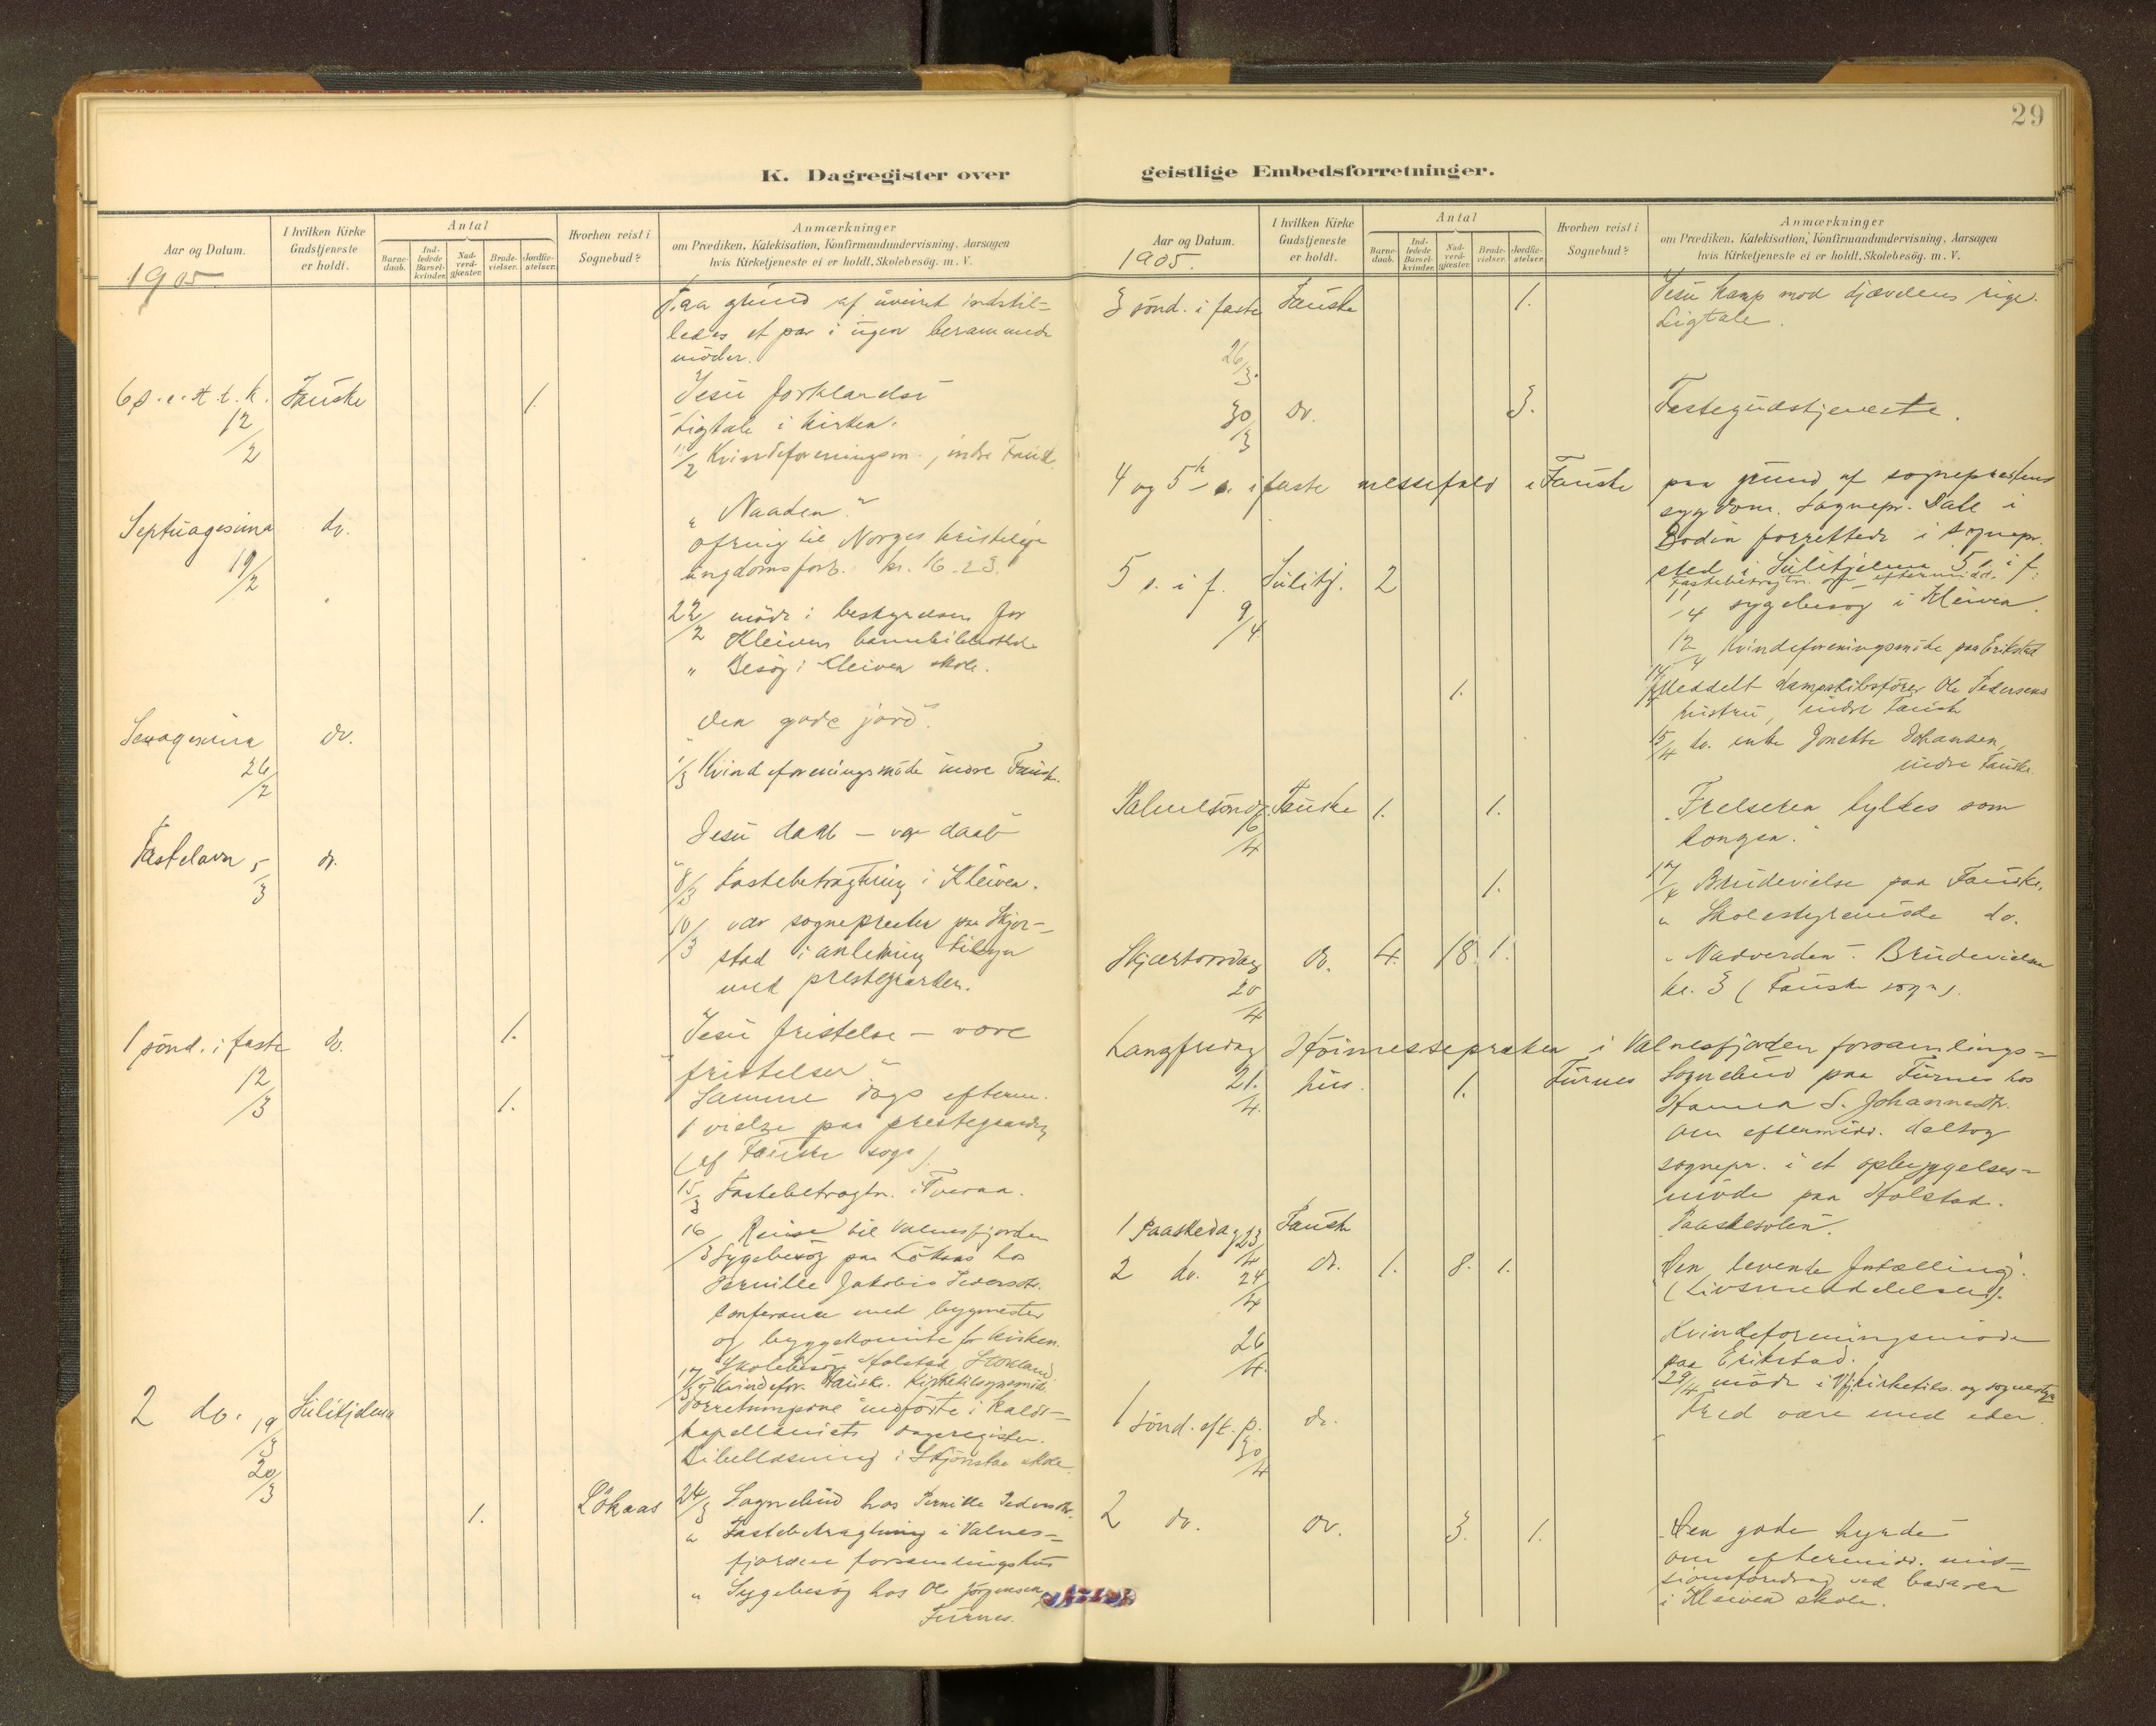 29
K. Dagregister over geistlige Embedsforretninger.
Aar og Datum.
I hvilken Kirke Gudstjeneste er holdt.
Antal
Barne-daab.
Ind-ledede Barsel-kvinder.
Nad-verd-gjæster.
Brude-vielser.
Jordfæ-stelser.
Hvorhen reist i Sognebud?
Anmærkninger
om Prædiken, Katekisation, Konfirmandundervisning, Aarsagen
hvis Kirketjeneste ei er holdt, Skolebesög. m. V.
1905
Paa grund af uveiret indstil-
ledes et par i ugen berammede
möder.
6 s. e. H. t. k. 12/2 Fauske 1. Jesu forklarelse
Ligtale i kirken.
Kvindeforeningsm., indre Fausk.
Septuagesima 19/2 do. "Naaden."
ofring til Norges kristelige
ungdomsforb. kr. 16.23.
22/2 möde i bestyrelsen for
Kleivens barnebibliothek
" Besög i Kleiven skole.
Sexagesima 26/2 do. Den gode jord".
1/3 Kvindeforeningsmöde indre Fausk.
Fastelavn 5/3 do. Jesu daab – vor daab"
8/3 Fastebetragtning i Kleiven.
10/3 var sognepresten paa Skjer-
stad i anledning tilsyn
med prestegaarden.
1 sönd. i faste 12/3 do. 1. "Jesu fristelse – vore
fristelser."
1. Samme dags efterm.
1 vielse paa prestegaarden
(af Fauske sogn).
15/3 Fastebetragtn. i Tveraa.
16/3 Reise til Valnesfjorden
Sygebesög paa Lökaas hos
Pernille Jakobis Pedersdtr.
Conferance med bygmester
og byggekomite for kirken.
17/3 Skolebesög Holstad, Stokland
Kvindefor. Fauske. Kirketilsynsmöde.
2 do. 19/3 Sulitjelma
Forretningerne indförte i Kald-
kapellaniets dagregister.
20/3 Bibellæsning i Skjönstaa skole.
1. Lökaas 24/3 Sognebud hos Pernille Pedersdtr.
" Fastebetragtning i Valnes-
fjorden forsamlingshus
" Sygebesög hos Ole Jörgensen,
Furnes.
Aar og Datum.
I hvilken Kirke Gudstjeneste er holdt.
Antal
Barne-daab.
Ind-ledede Barsel-kvinder.
Nad-verd-gjæster.
Brude-vielser.
Jordfæ-stelser.
Hvorhen reist i Sognebud?
Anmærkninger
om Prædiken, Katekisation, Konfirmandundervisning, Aarsagen
hvis Kirketjeneste ei er holdt, Skolebesög. m. V.
1905.
3 sönd. i faste 26/3. Fauske 1. Jesu kamp mod djævelens rige.
Ligtale.
30/3 do. 3. Fastegudstjeneste.
4 og 5te s. i faste messefald i Fauske paa grund af sogneprestens
sygdom. Sognepr. Dale i
Bodin forrettede i sognepr.
sted i Sulitjelma 5 s. i f.
5 s. i f. 9/4 Sulitj. 2 Fastebetragtn. om eftermidd.
11/4 sygebesög i Kleiven.
12/4 Kvindeforeningsmöde paa Erikstad
1. 14/4 Meddelt dampskibsförer Ole Pedersens
hustru, indre Fausk
15/4 do. enke Jonette Johansen,
indre Fauske.
Palmesöndg. 16/4 Fauske 1. 1. "Frelseren hyldes som
kongen."
1. 17/4 Brudevielse paa Fauske.
" Skolestyremöde do.
Skjærtorsdag 20/4 do. 4. 18. 1. "Nadverden". Brudevielse
kl. 3 (Fauske sogn).
Langfredag 21/4. Höimessepræken i Valnesfjorden forsamlings-
hus. 1. Furnes Sognebud paa Furnes hos
Hanna S. Johannesdtr.
Om eftermidd. deltog
sognepr. i et opbyggelses-
möde paa Holstad.
1 Paaskedag 23/4 Fausk "Paaskesolen".
2 do. 24/4 do. 1. 8. 1. "Den levende fortælling".
(Livsmeddelelsen).
26/4. Kvindeforeningsmöde
paa Erikstad.
29/4 möde i Vfj. kirketils. og sognestyr.
1 sönd. eft. p. 30/4 do. Fred være med eder.
2 do. do. 3. 1. "Den gode hyrde"
om eftermidd. mis-
sionsforedrag ved basaren
i Kleiven skole.